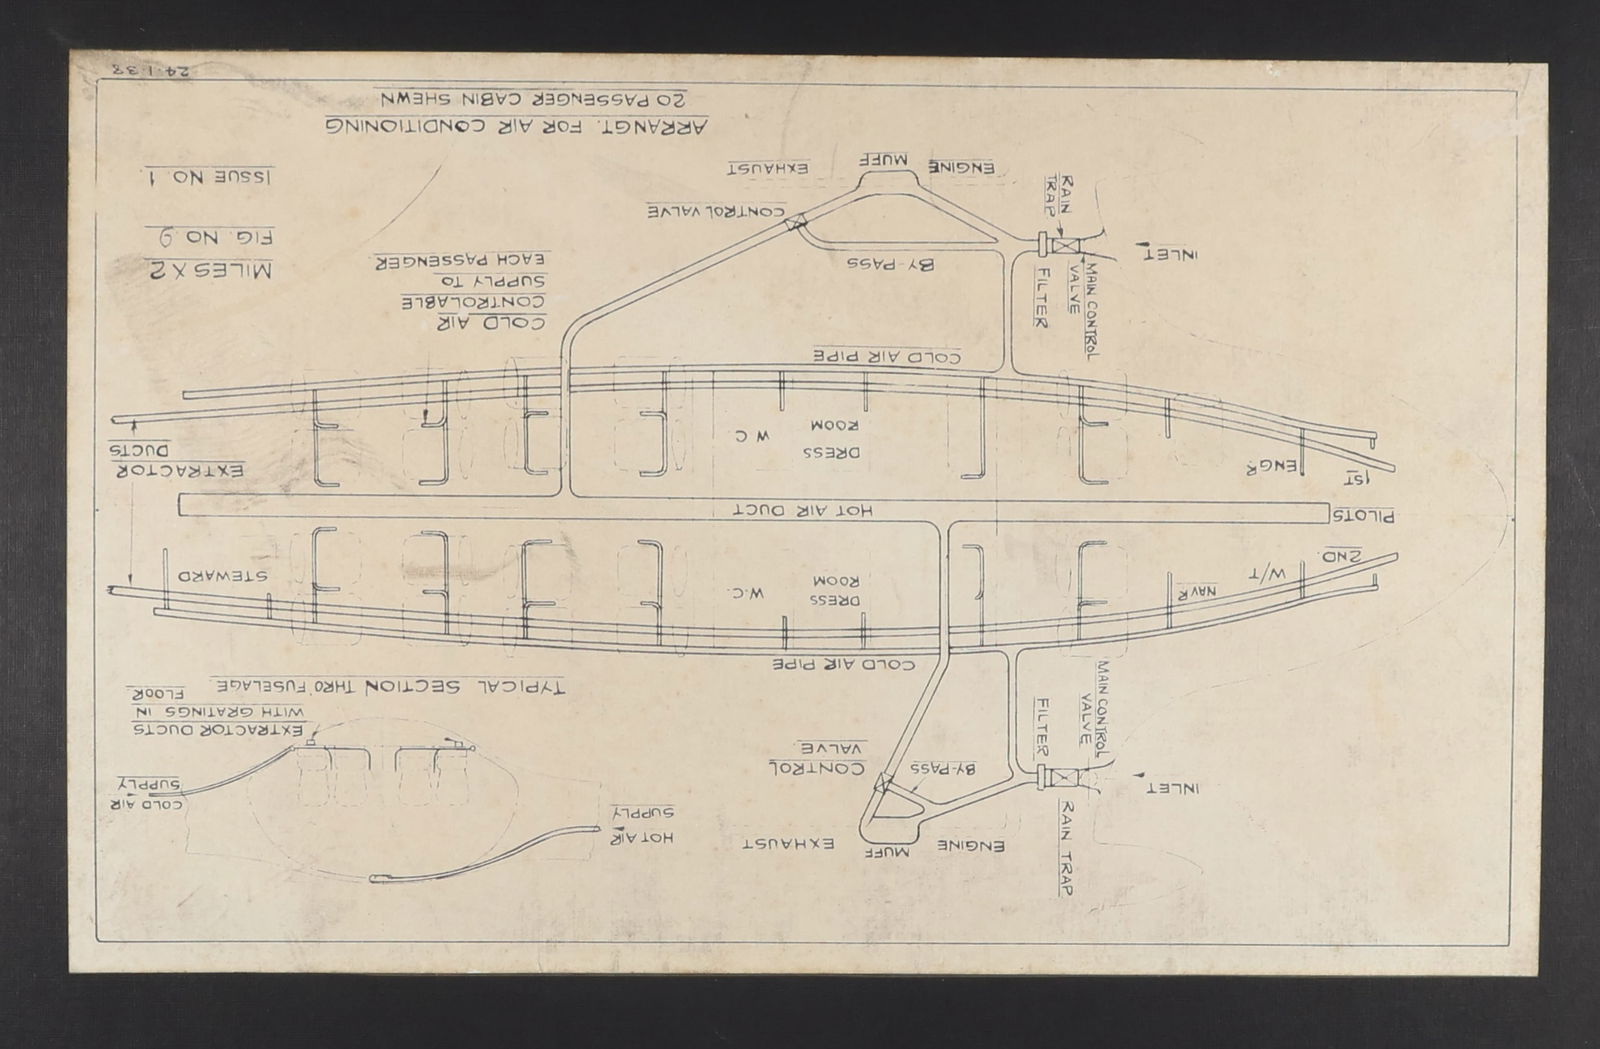 RAIN TRAP
ENGINE
MUFF
EXHAUST
HOT AIR
SUPPLY
INLET
BY-PASS
CONTROL
VALVE
COLD AIR
SUPPLY
MAIN CONTROL
VALVE
FILTER
EXTRACTOR DUCTS
WITH GRATINGS IN
FLOOR
TYPICAL SECTION THRO' FUSELAGE
COLD AIR PIPE
NAVR
W/T
2ND
DRESS
ROOM
W.C.
STEWARD
PILOTS
HOT AIR DUCT
1ST
ENGR
DRESS
ROOM
W C
EXTRACTOR
DUCTS
COLD AIR PIPE
COLD AIR
CONTROLABLE
SUPPLY TO
EACH PASSENGER
MAIN CONTROL
VALVE
FILTER
INLET
BY-PASS
MILES X2
FIG. NO 9
RAIN
TRAP
CONTROL VALVE
ENGINE
MUFF
EXHAUST
ISSUE NO 1.
ARRANGT. FOR AIR CONDITIONING
20 PASSENGER CABIN SHEWN
24.1.38